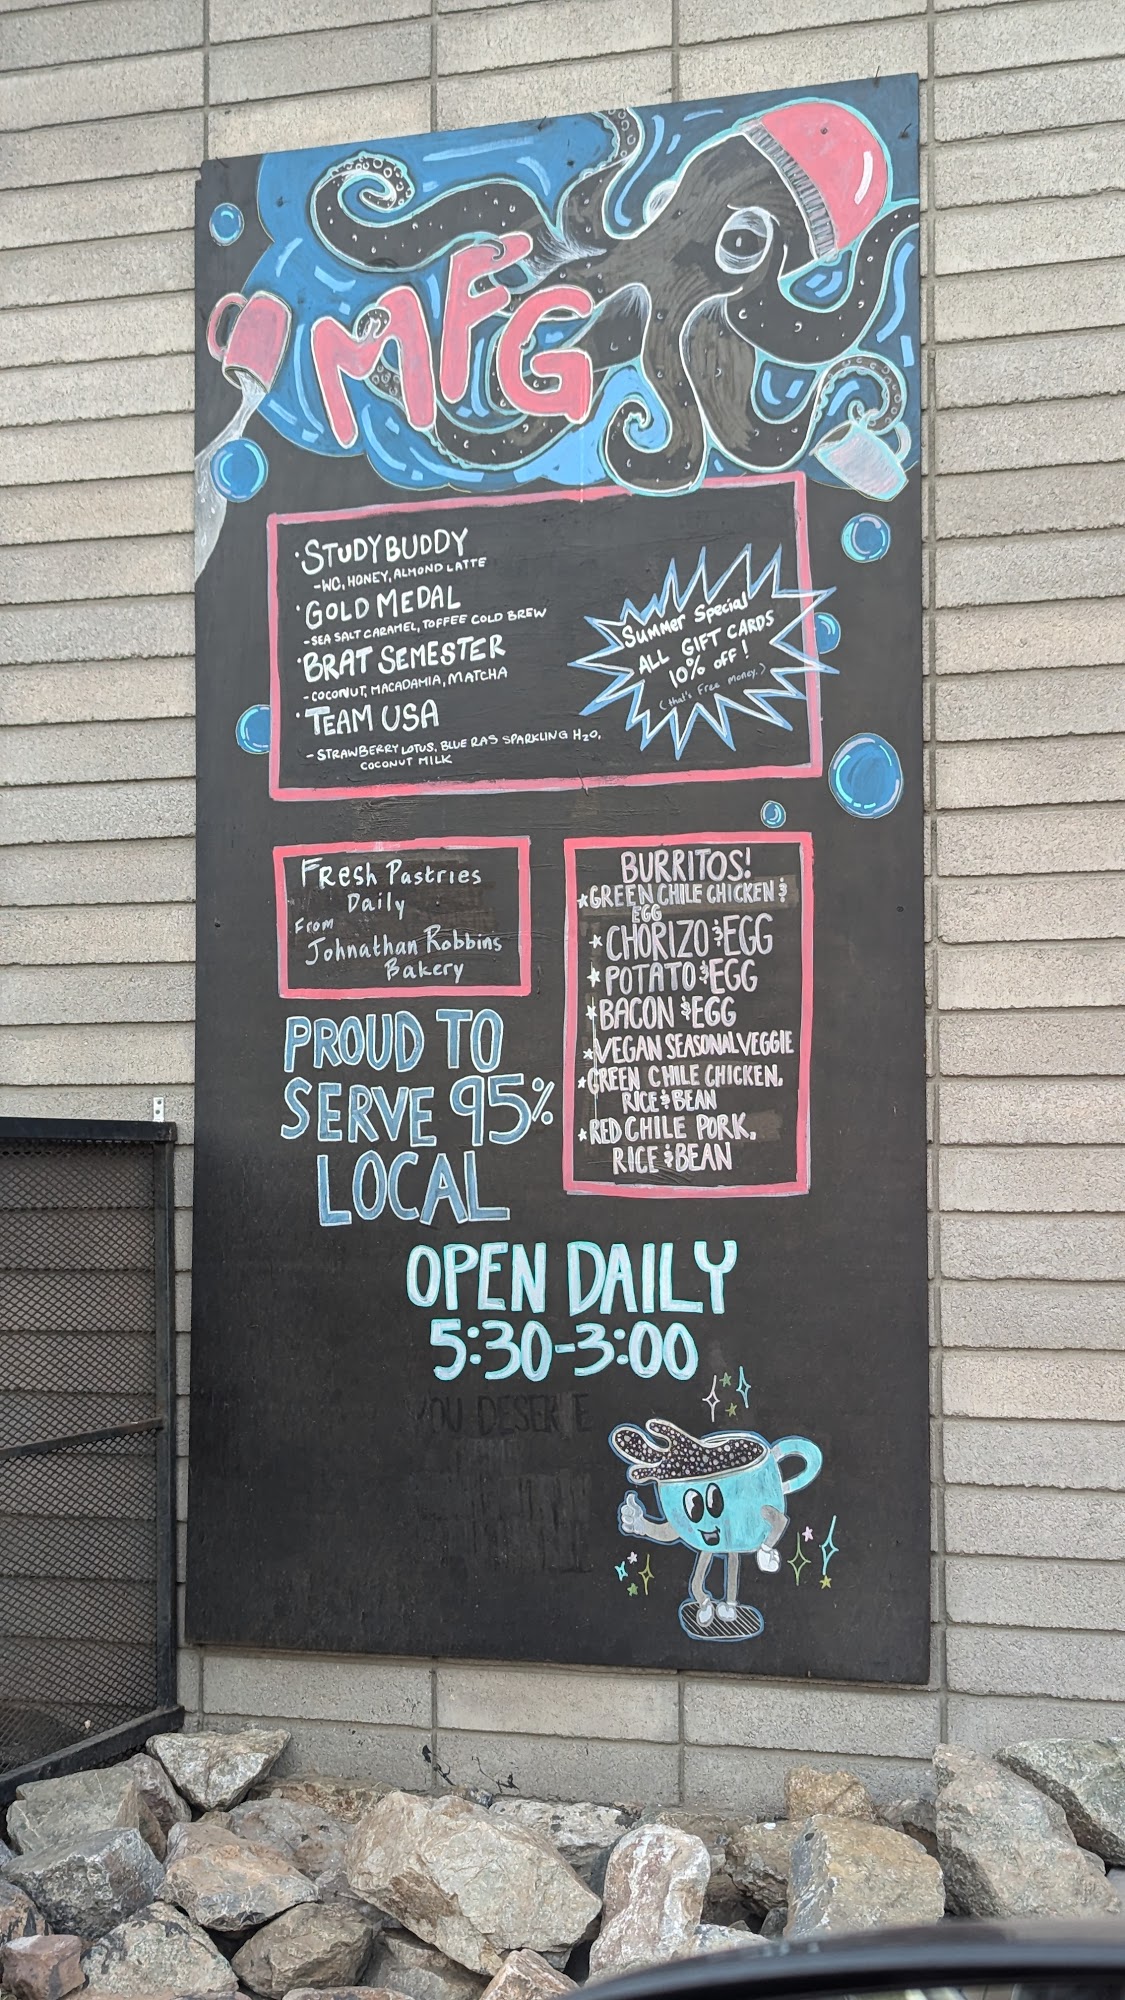 MFG
·STUDY BUDDY
-WC, HONEY, ALMOND LATTE
·GOLD MEDAL
-SEA SALT CARAMEL, TOFFEE COLD BREW
·BRAT SEMESTER
-COCONUT, MACADAMIA, MATCHA
·TEAM USA
-STRAWBERRY LOTUS, BLUE RAS SPARKLING H2O,
COCONUT MILK
Summer Special
ALL GIFT CARDS
10% off!
(that's free money.)
Fresh Pastries
Daily
From
Johnathan Robbins
Bakery
BURRITOS!
*GREEN CHILE CHICKEN &
EGG
*CHORIZO & EGG
*POTATO & EGG
*BACON & EGG
*VEGAN SEASONAL VEGGIE
*GREEN CHILE CHICKEN,
RICE & BEAN
*RED CHILE PORK,
RICE & BEAN
PROUD TO
SERVE 95%
LOCAL
OPEN DAILY
5:30-3:00
YOU DESERVE